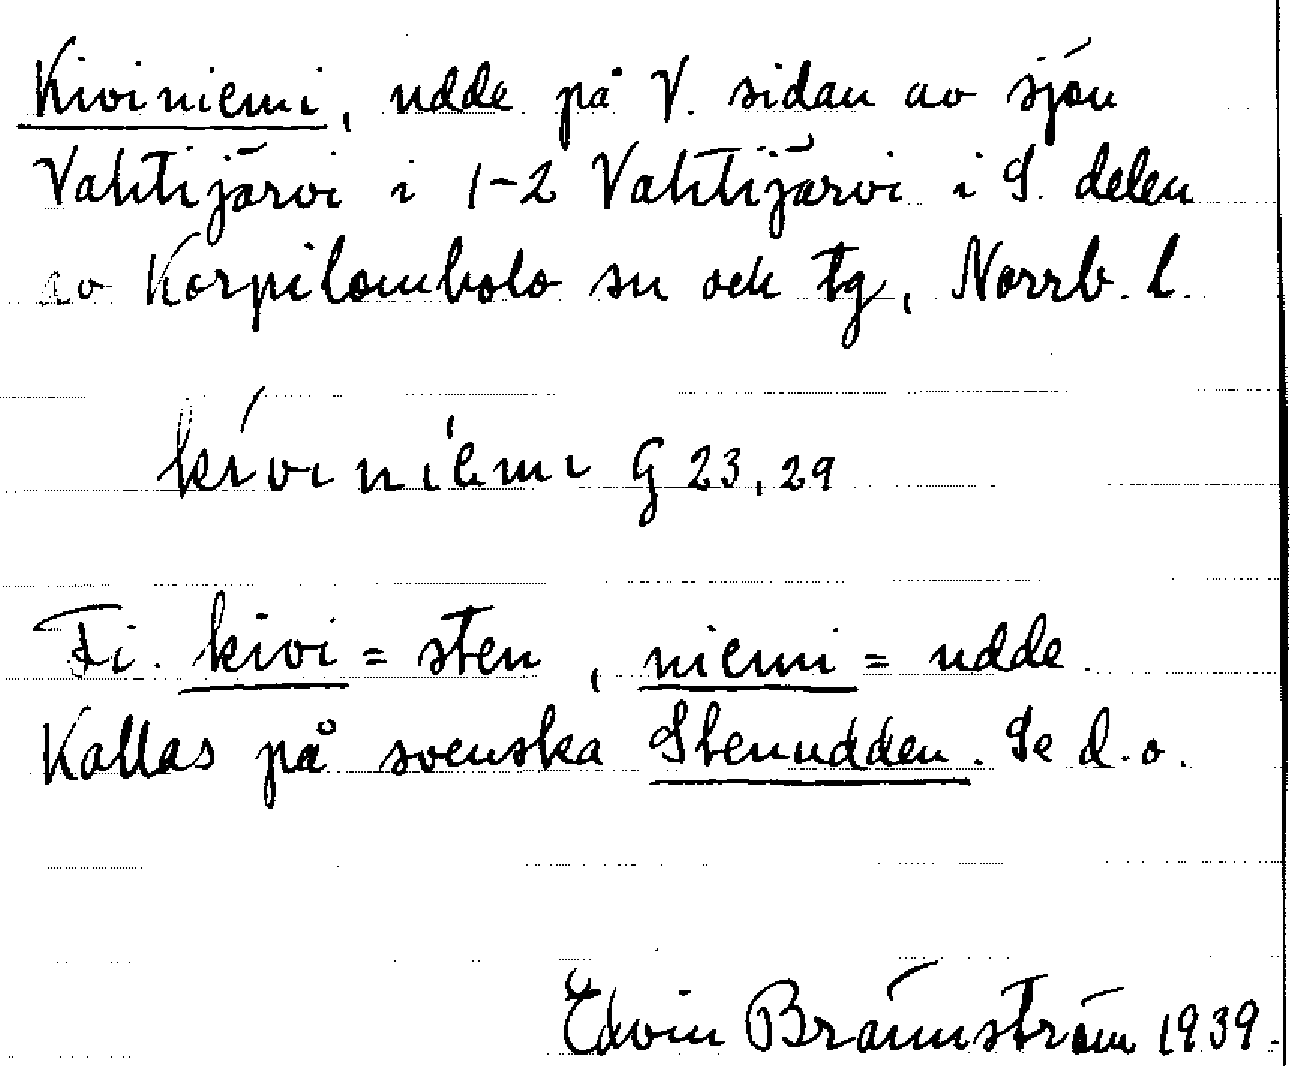 Kiviniemi, udde på V. sidan av sjön
Vahtijärvi i 1-2 Vahtijärvi i S. delen
av Korpilombolo sn och tg, Norrb. l.
kívinìemi G 23, 29
Fi. kivi = sten, niemi = udde.
Kallas på svenska Stenudden. Se d.o.
Edvin Brännström 1939.